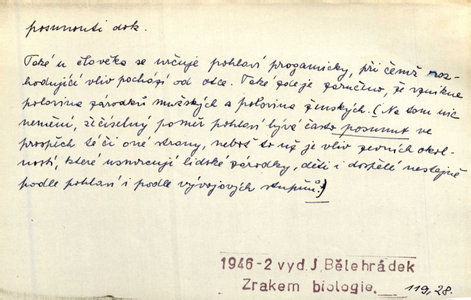 posunouti dok.
Také u člověka se určuje pohlaví progamicky, při čemž roz-
hodující vliv pochází od otce. Také zde je zaručeno, že vznikne
polovina zárodků mužských a polovina ženských. (Na tom nic
nemění, že číselný poměr pohlaví bývá často posunut ve
prospěch té či oné strany, neboť to už je vliv zevních okol-
ností, které usmrcují lidské zárodky, děti i dospělé nestejně
podle pohlaví i podle vývojových stupňů.)
1946-2 vyd. J. Bělehrádek
Zrakem biologie. 119, 28.